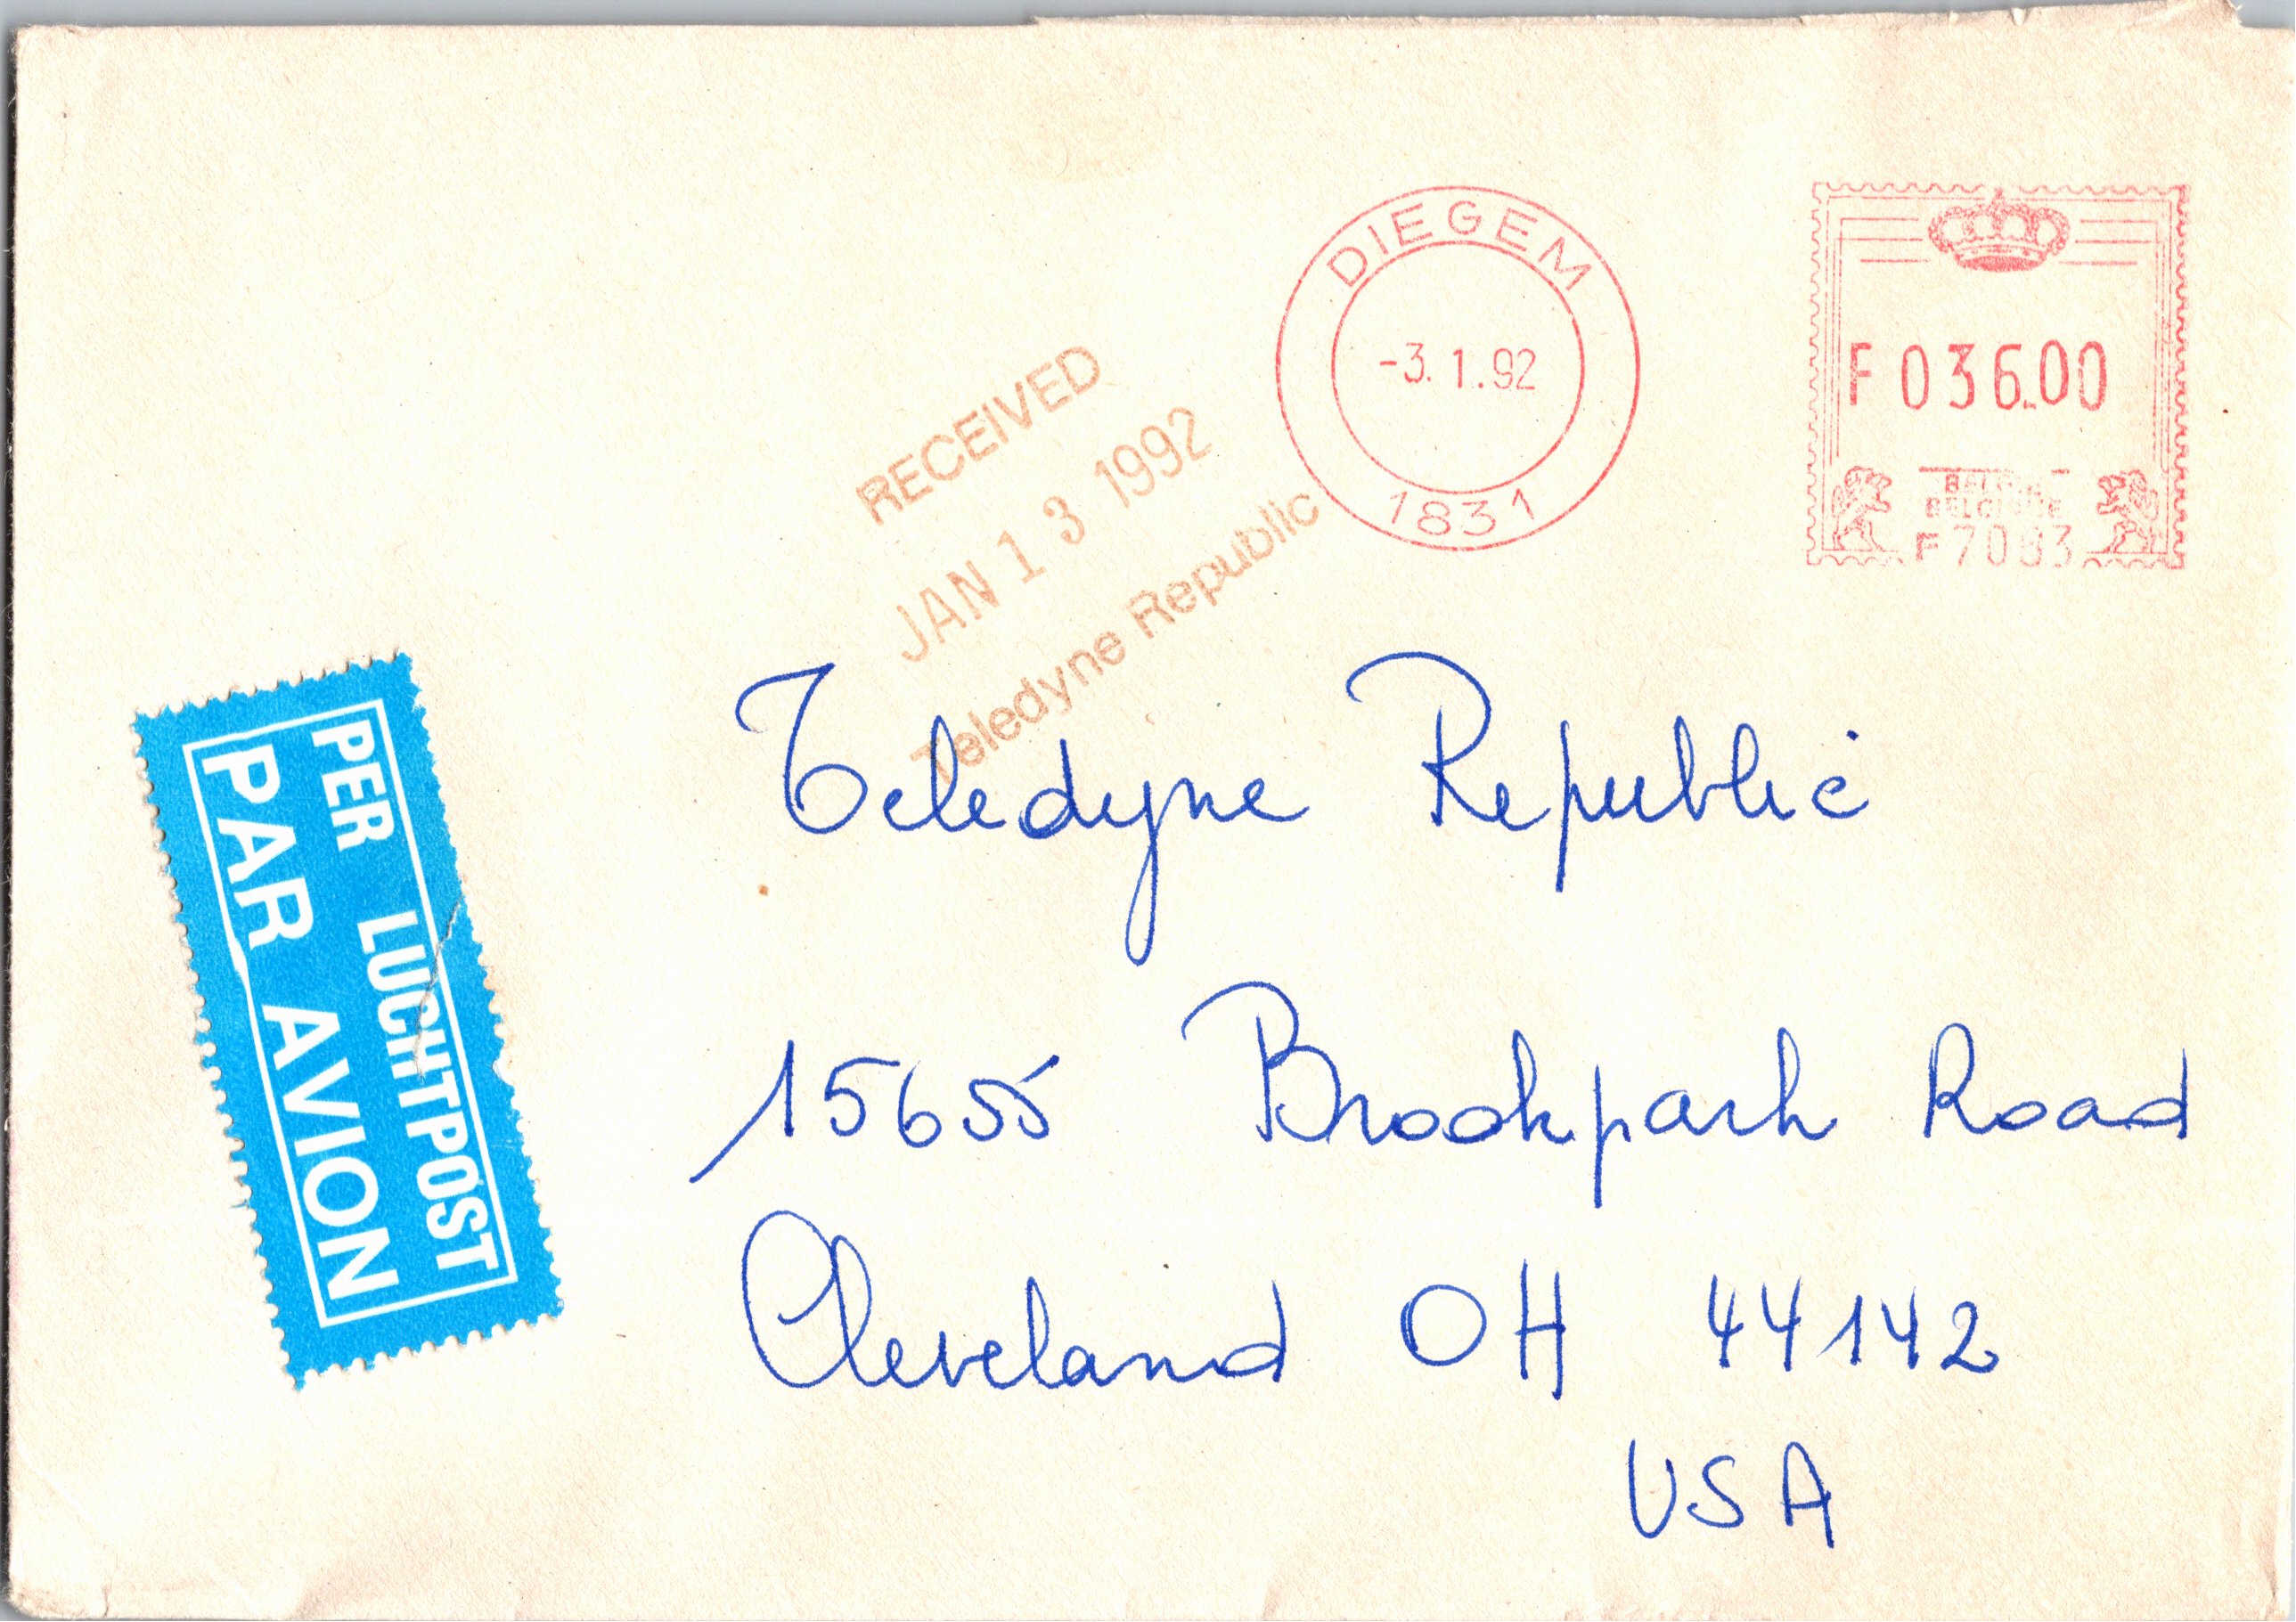 DIEGEM
-3.1.92
1831
F 036.00
BELGIE
BELGIQUE
RECEIVED
JAN 13 1992
Teledyne Republic
PER LUCHTPOST
PAR AVION
Teledyne Republic
15655 Brookpark Road
Cleveland OH 44142
USA